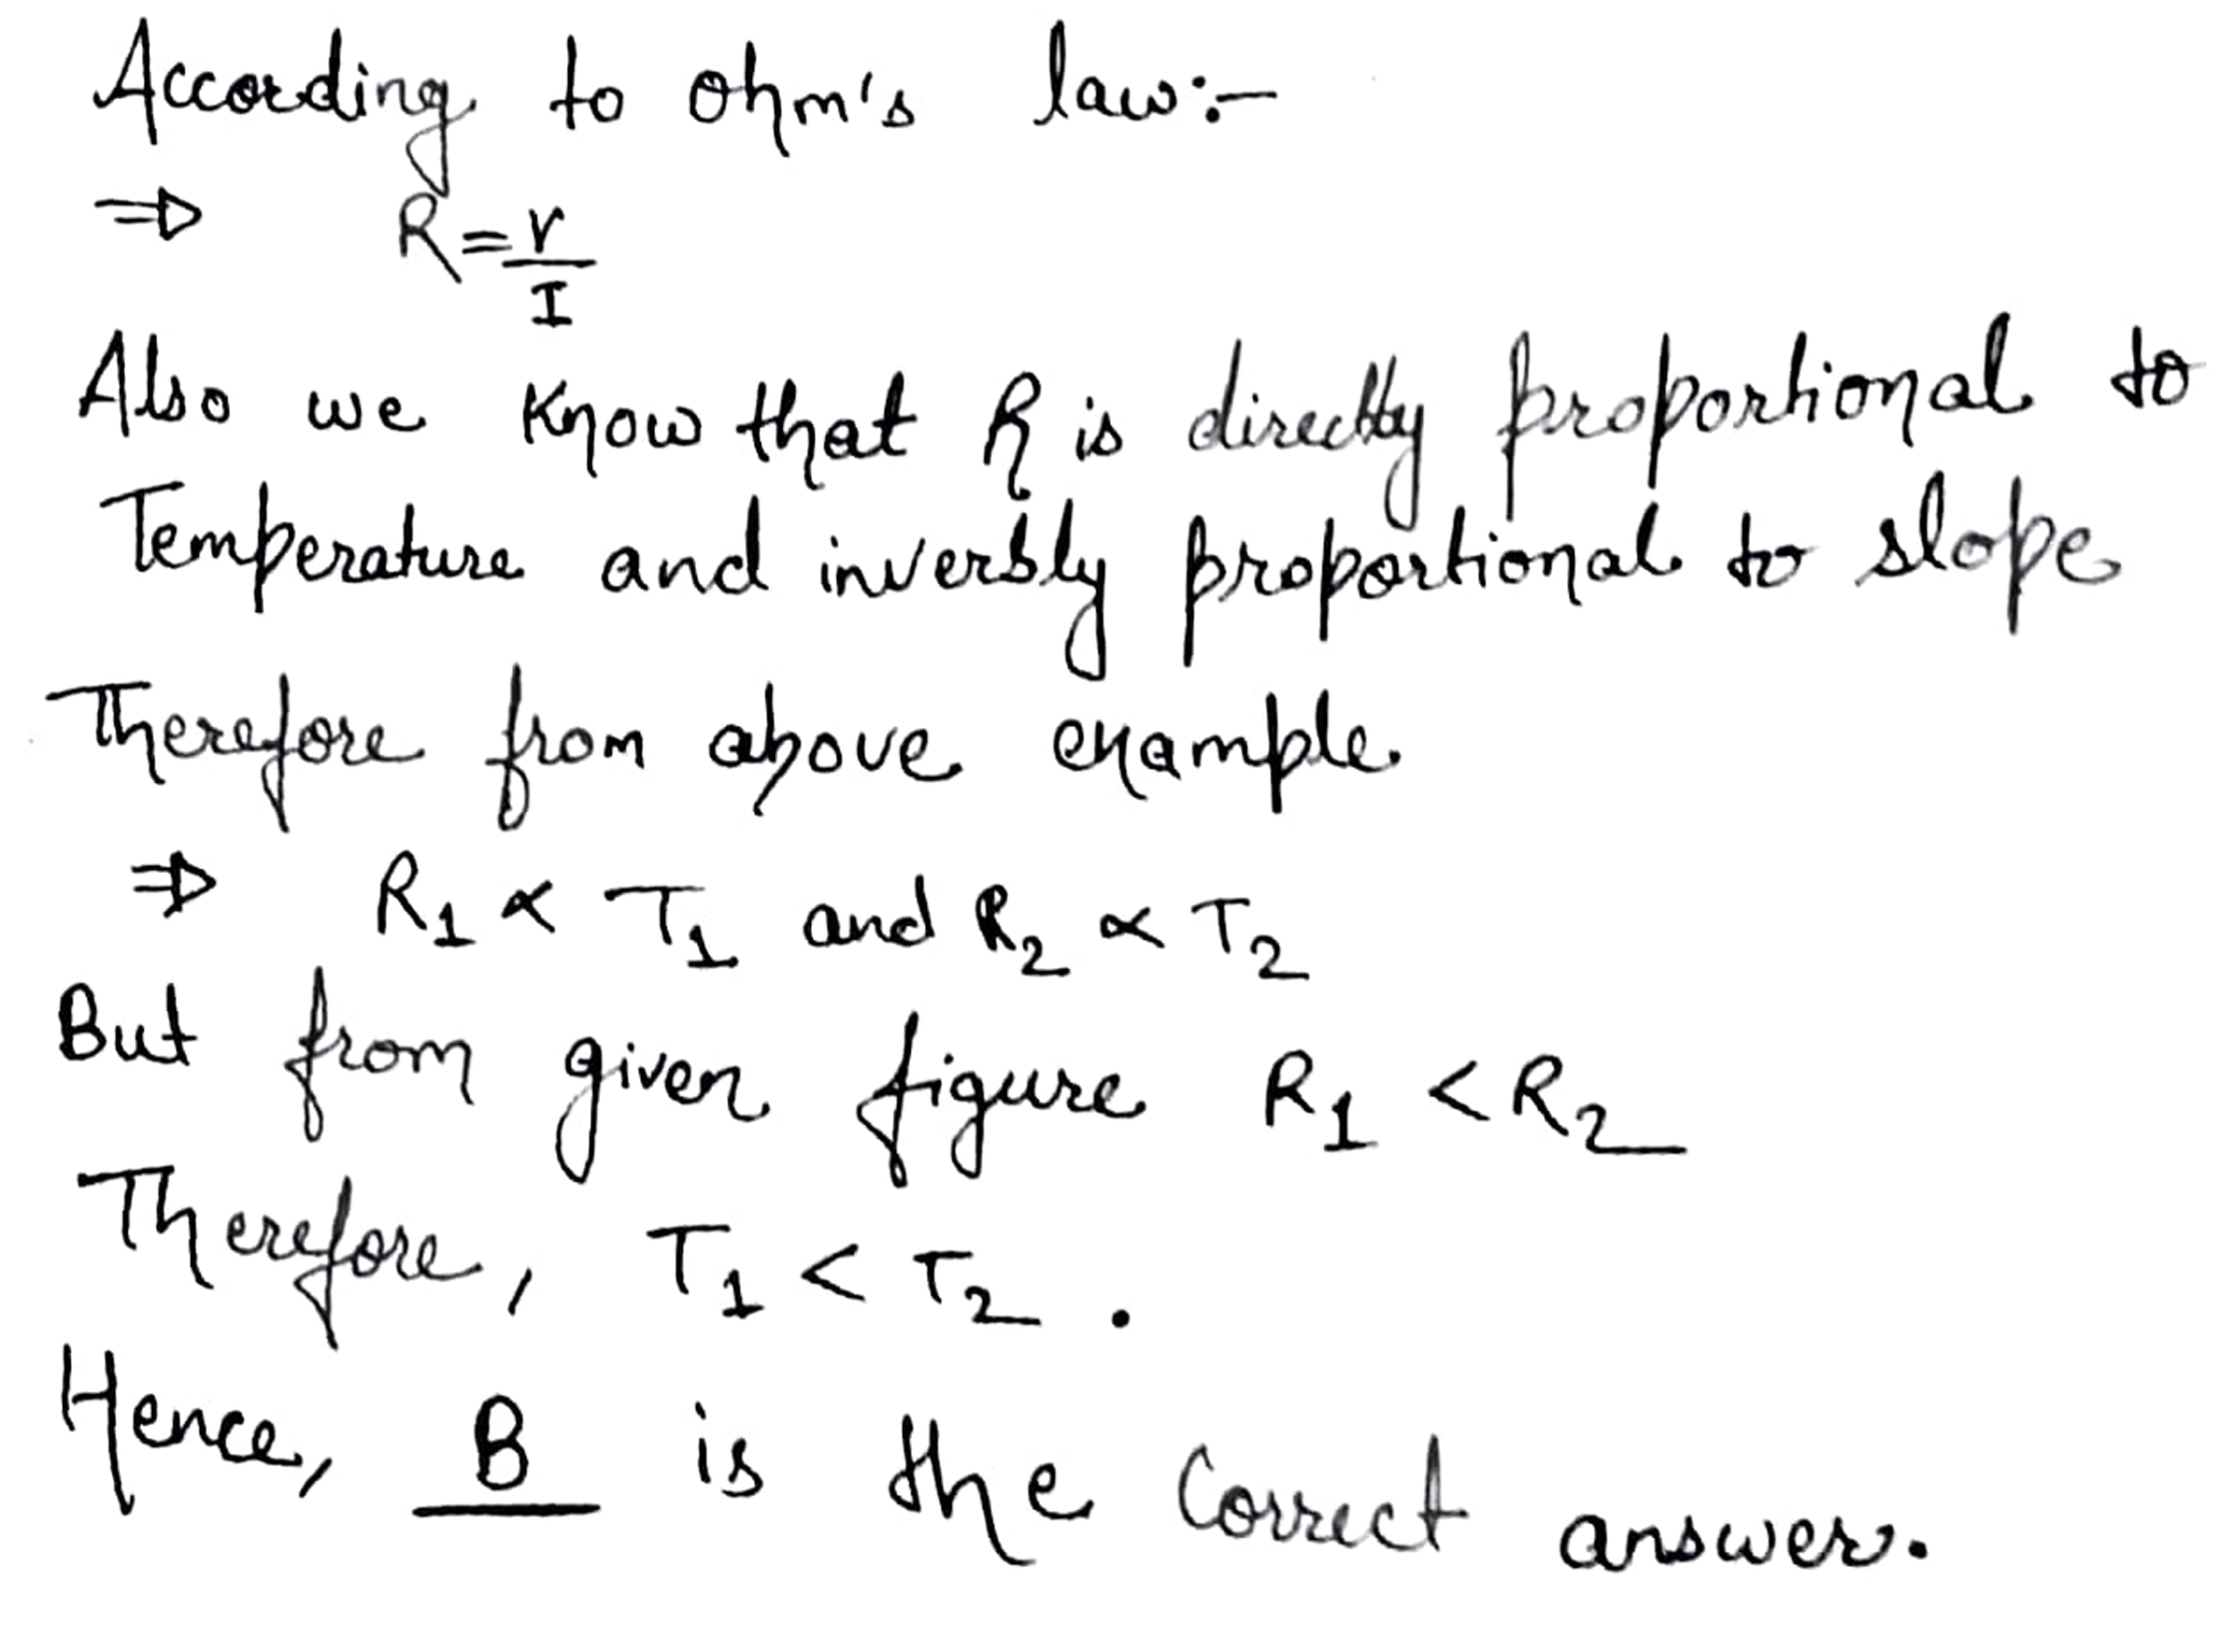 According to ohm's law:-
⇒ R = V/I
Also we know that R is directly proportional to
Temperature and inversly proportional to slope
Therefore from above example
⇒ R₁ ∝ T₁ and R₂ ∝ T₂
But from given figure R₁ < R₂
Therefore, T₁ < T₂ .
Hence, B is the correct answer.